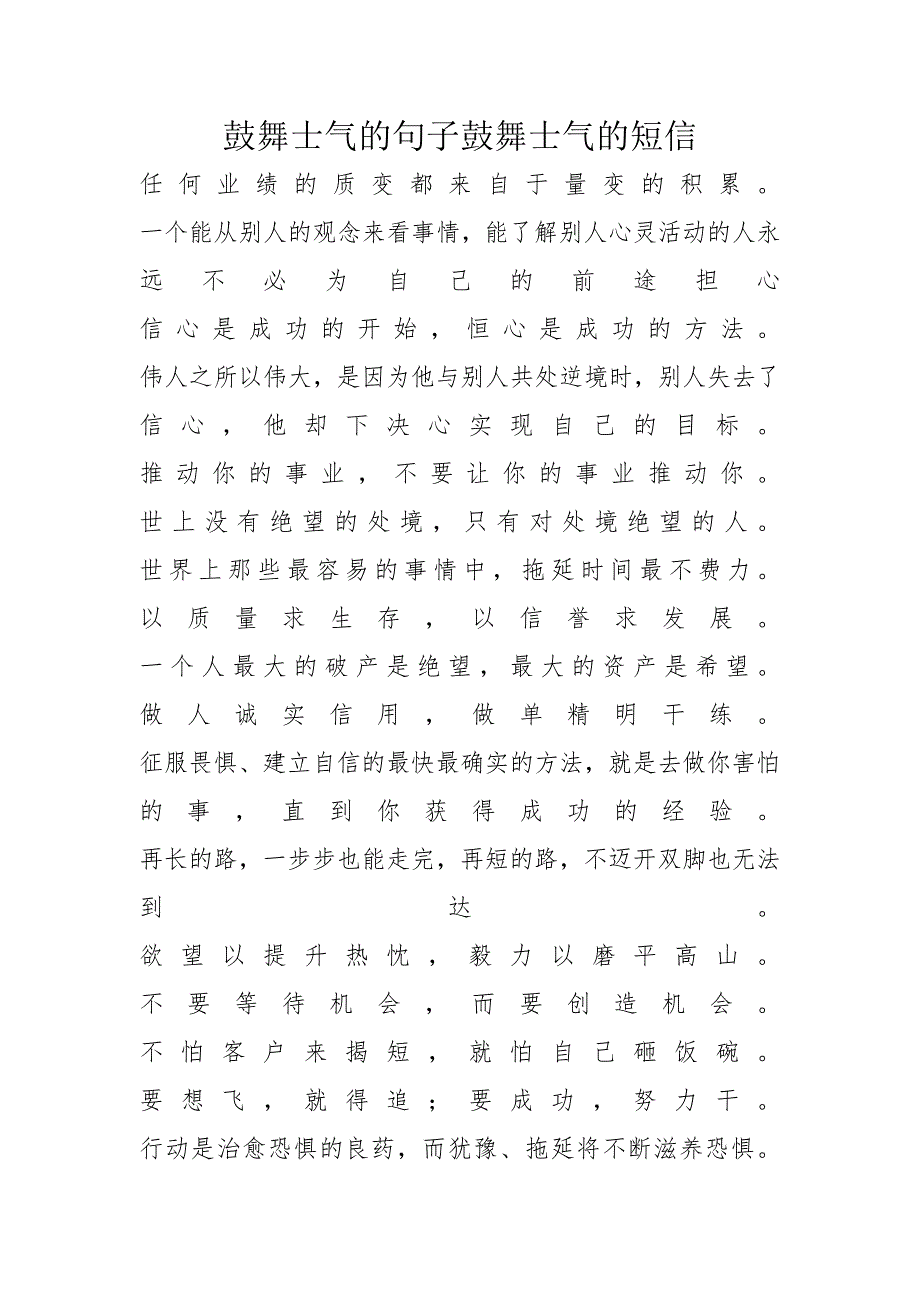 鼓舞士气的句子鼓舞士气的短信
任何业绩的质变都来自于量变的积累。
一个能从别人的观念来看事情，能了解别人心灵活动的人永
远不必为自己的前途担心
信心是成功的开始，恒心是成功的方法。
伟人之所以伟大，是因为他与别人共处逆境时，别人失去了
信心，他却下决心实现自己的目标。
推动你的事业，不要让你的事业推动你。
世上没有绝望的处境，只有对处境绝望的人。
世界上那些最容易的事情中，拖延时间最不费力。
以质量求生存，以信誉求发展。
一个人最大的破产是绝望，最大的资产是希望。
做人诚实信用，做单精明干练。
征服畏惧、建立自信的最快最确实的方法，就是去做你害怕
的事，直到你获得成功的经验。
再长的路，一步步也能走完，再短的路，不迈开双脚也无法
到达。
欲望以提升热忱，毅力以磨平高山。
不要等待机会，而要创造机会。
不怕客户来揭短，就怕自己砸饭碗。
要想飞，就得追；要成功，努力干。
行动是治愈恐惧的良药，而犹豫、拖延将不断滋养恐惧。